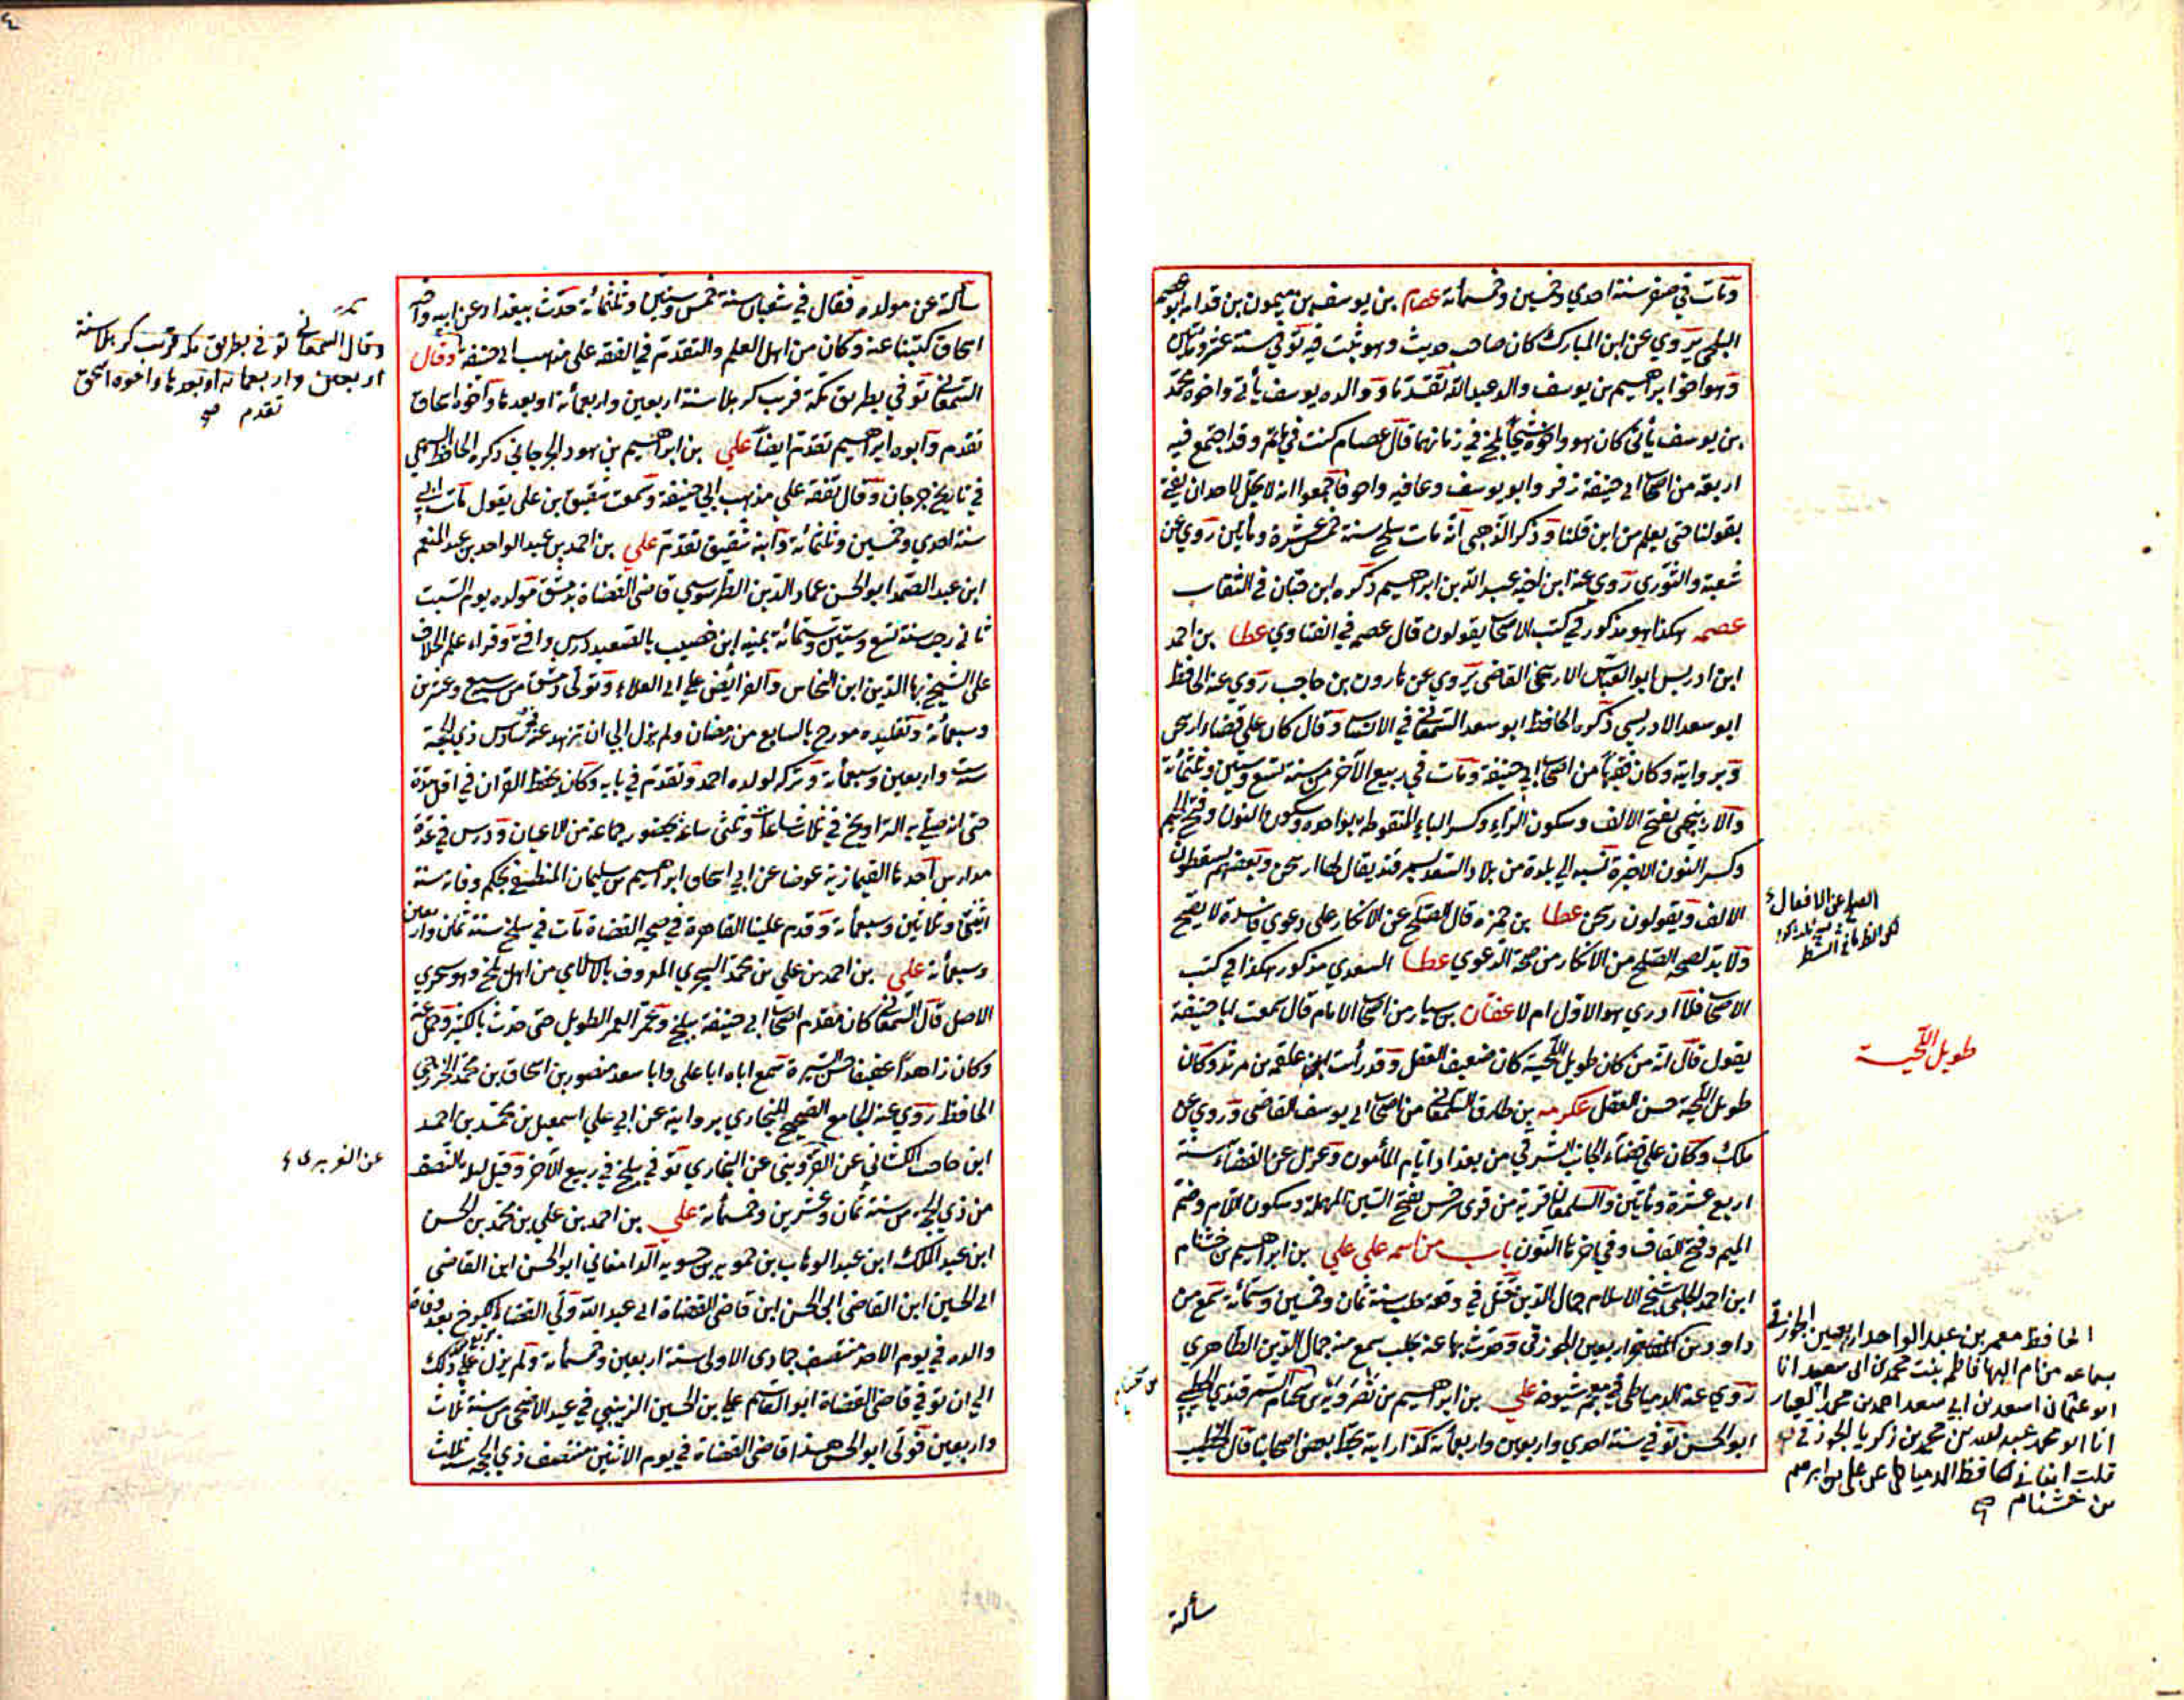 ومات في صفر سنة احدي وخمسين وخمسمأئة عصام بن يوسف بن ميمون بن قدامه ابو ابراهيم
البلخي يروي عن ابن المبارك كان صاحب حديث وهو ثبت فيه توفي سنة عشر ومأتين
وهو اخو ابراهيم بن يوسف والد عبد الله تقدما ووالده يوسف يأتي واخوه محمد
بن يوسف يأتي كان هو واخوه شيخا بلخ في زمانهما قال عصام كنت في مأتم وقد اجتمع فيه
اربعة من اصحاب ابي حنيفة زفر وابو يوسف وعافيه واخر فاجمعوا انه لا يحل لاحد ان يفتي
بقولنا حتي يعلم من اين قلنا وذكر الذهبي انه مات ببلخ سنة خمس عشرة ومأتين روي عن
شعبة والثوري روي عنه ابن اخيه عبد الله بن ابراهيم ذكره ابن حبان في الثقات
عصمه هكذا هو مذكور في كتب الاصحاب يقولون قال عصمه في الفتاوي عطا بن احمد
ابن ادريس ابو العباس الاربنجني القاضي يروي عن هارون بن حاجب روي عنه الحافظ
ابو سعد الادريسي ذكره الحافظ ابو سعد السمعاني في الانساب وقال كان علي قضاء اربنجن
وبر وايته وكان فقيها من اصحاب ابي حنيفة ومات في ربيع الآخر من سنة تسع وستين وثلثمأئة
والاربنجني بفتح الالف وسكون الراء وكسر الباء المنقوطه بواحده وسكون النون وفتح الجيم
وكسر النون الاخيرة نسبه الي بلدة من بلاد السغد بسمرقند يقال لها اربنجن وبعضهم يسقطون
الالف ويقولون ربنجن عطا بن حمزه قال الصلح عن الانكار علي دعوي فاسدة لا يصح
ولا بد لصحة الصلح من الانكار من صحة الدعوي عطا السعدي مذكور هكذا في كتب
الاصحاب فلا ادري هو الاول ام لا عفان بن سيار من اصحاب الامام قال سمعت ابا حنيفة
يقول قال انه من كان طويل اللحية كان ضعيف العقل وقد رأيت علقمه بن مرثد وكان
طويل اللحية حسن العقل عكرمه بن طارق السلمقاني من اصحاب ابي يوسف القاضي وروي عن
ملك وكان علي قضاء الجانب الشرقي من بغداد ايام المأمون وعزل عن القضاء سنة
اربع عشرة ومأتين والسلمقان قرية من قري سرخس بفتح السين المهملة وسكون اللام وضم
الميم وفتح القاف وفي اخرها النون باب من اسمه علي علي بن ابراهيم بن خشنام
ابن احمد الحلبي شيخ الاسلام جمال الدين قتل في وقعة حلب سنة ثمان وخمسين وستمأئة سمع من
داود بن اربعين الجوزقي وحدث بها عنه بحلب سمع منه جمال الدين الظاهري
روي عنه الدمياطي في معجم شيوخه علي بن ابراهيم بن نصرويه بن سختام السمرقندي الخطيب
ابو الحسن توفي سنة احدي واربعين واربعمأئة كذا رايته بخط بعض اصحابنا قال الخطيب
الصلح عن الانكار
طويل اللحية
الحافظ معمر بن عبد الواحد اربعين الجوزقي
بسماعه من ام البها فاطمه بنت محمد بن ابي سعيد انا
ابو عثمان اسعد بن ابي سعد احمد بن محمد العيار
انا ابو محمد عبد الله بن محمد بن زكريا الجوزقي
قلت انبأني الحافظ الدمياطي عن علي بن ابراهيم
بن خشنام صح
سألته
سألته عن مولده فقال في شعبان سنة خمس وستين وثلثمأئة حدث ببغداد عن ابيه واخيه
اسحاق كتبنا عنه وكان من اهل العلم والتقدم في الفقه علي مذهب ابي حنيفة وقال
السمعاني توفي بطريق مكة قرب كربلا سنة اربعين واربعمأئة او بعدها واخوه اسحاق
تقدم وابوه ابراهيم تقدم ايضا علي بن ابراهيم بن هود الجرجاني ذكره الحافظ السهمي
في تاريخ جرجان وقال تفقه علي مذهب ابي حنيفة وسمعت شقيق بن علي يقول مات ابي
سنة احدي وخمسين وثلثمائة وابنه شقيق تقدم علي بن احمد بن عبد الواحد بن عبد المنعم
ابن عبد الصمد ابو الحسن عماد الدين الطرسوسي قاضي القضاة بدمشق مولده يوم السبت
ثاني رجب سنة تسع وستين وستمائة بمنية ابن خصيب بالصعيد درس وافتي وقراء علم الخلاف
علي الشيخ بهاء الدين ابن النحاس والفرايض علي ابي العلاء وتولي دمشق من سبع وعشرين
وسبعمأئة وتقليده مورخ بالسابع من رمضان ولم يزل الي ان تزهد عنه في سادس ذي الحجة
ست واربعين وسبعمأئة وتركه لولده احمد وتقدم في بابه وكان يحفظ القرآن في اقل مدة
حتي انه صلي به التراويح في ثلاث ساعات وثلثي ساعة بحضور جماعة من الاعيان ودرس في عدة
مدارس احدها القيمازية عوضا عن ابي اسحاق ابراهيم بن سليمان المنطيقي بحكم وفاته سنة
اثنتي وثلاثين وسبعمأئة وقدم علينا القاهرة في صحبه القضاة مات في سلخ سنة ثمان واربعين
وسبعمأئة علي بن احمد بن علي بن محمد السجزي المعروف بالاسلامي من اهل بلخ وهو سجزي
الاصل قال السمعاني كان مقدم اصحاب ابي حنيفة ببلخ وعمر العمر الطويل حتي حدث بالكثير وحمل عنه
وكان زاهدا عفيفا حسن السيرة سمع اباه ابا علي وابا سعد منصور بن اسحاق بن محمد الخزرجي
الحافظ روي عنه الجامع الصحيح للبخاري بروايته عن ابي علي اسمعيل بن محمد بن احمد
ابن حاجب الكشاني عن البخاري توفي ببلخ في ربيع الآخر وقيل ليلة النصف
من ذي الحجة من سنة ثمان وعشرين وخمسمأئة علي بن احمد بن علي بن محمد بن الحسن
ابن عبد الملك ابن عبد الوهاب بن حمويه بن حسنويه الدامغاني ابو الحسن ابن القاضي
ابي الحسين ابن القاضي ابي الحسن ابن قاضي القضاة ابي عبد الله ولي القضاء بالكرخ بعد وفاة
والده في يوم الاحد منتصف جمادي الاولي سنة اربعين وخمسمأئة ولم يزل علي ذلك
الي ان توفي قاضي القضاة ابو القاسم علي بن الحسين الزينبي في عيد الاضحي من سنة ثلاث
واربعين فولي ابو الحسن هذا قاضي القضاة في يوم الاثنين منتصف ذي الحجة سنة ثلث
وقال السمعاني توفي بطريق مكه قرب كربلا سنة
اربعين واربعمائه او بعدها واخوه اسحق
تقدم صح
عن الفربري